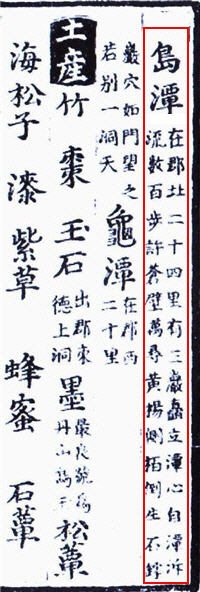 島潭
在郡北二十四里有三巖矗立潭心自潭泝
流數百步許蒼壁萬尋黃楊側栢倒生石罅
巖穴如門望之
若別一洞天
龜潭
在郡西
二十里
土産
竹 棗 玉石
出郡東
德上洞
墨
最良號爲
丹山烏玉
松蕈
海松子 漆 紫草 蜂蜜 石蕈